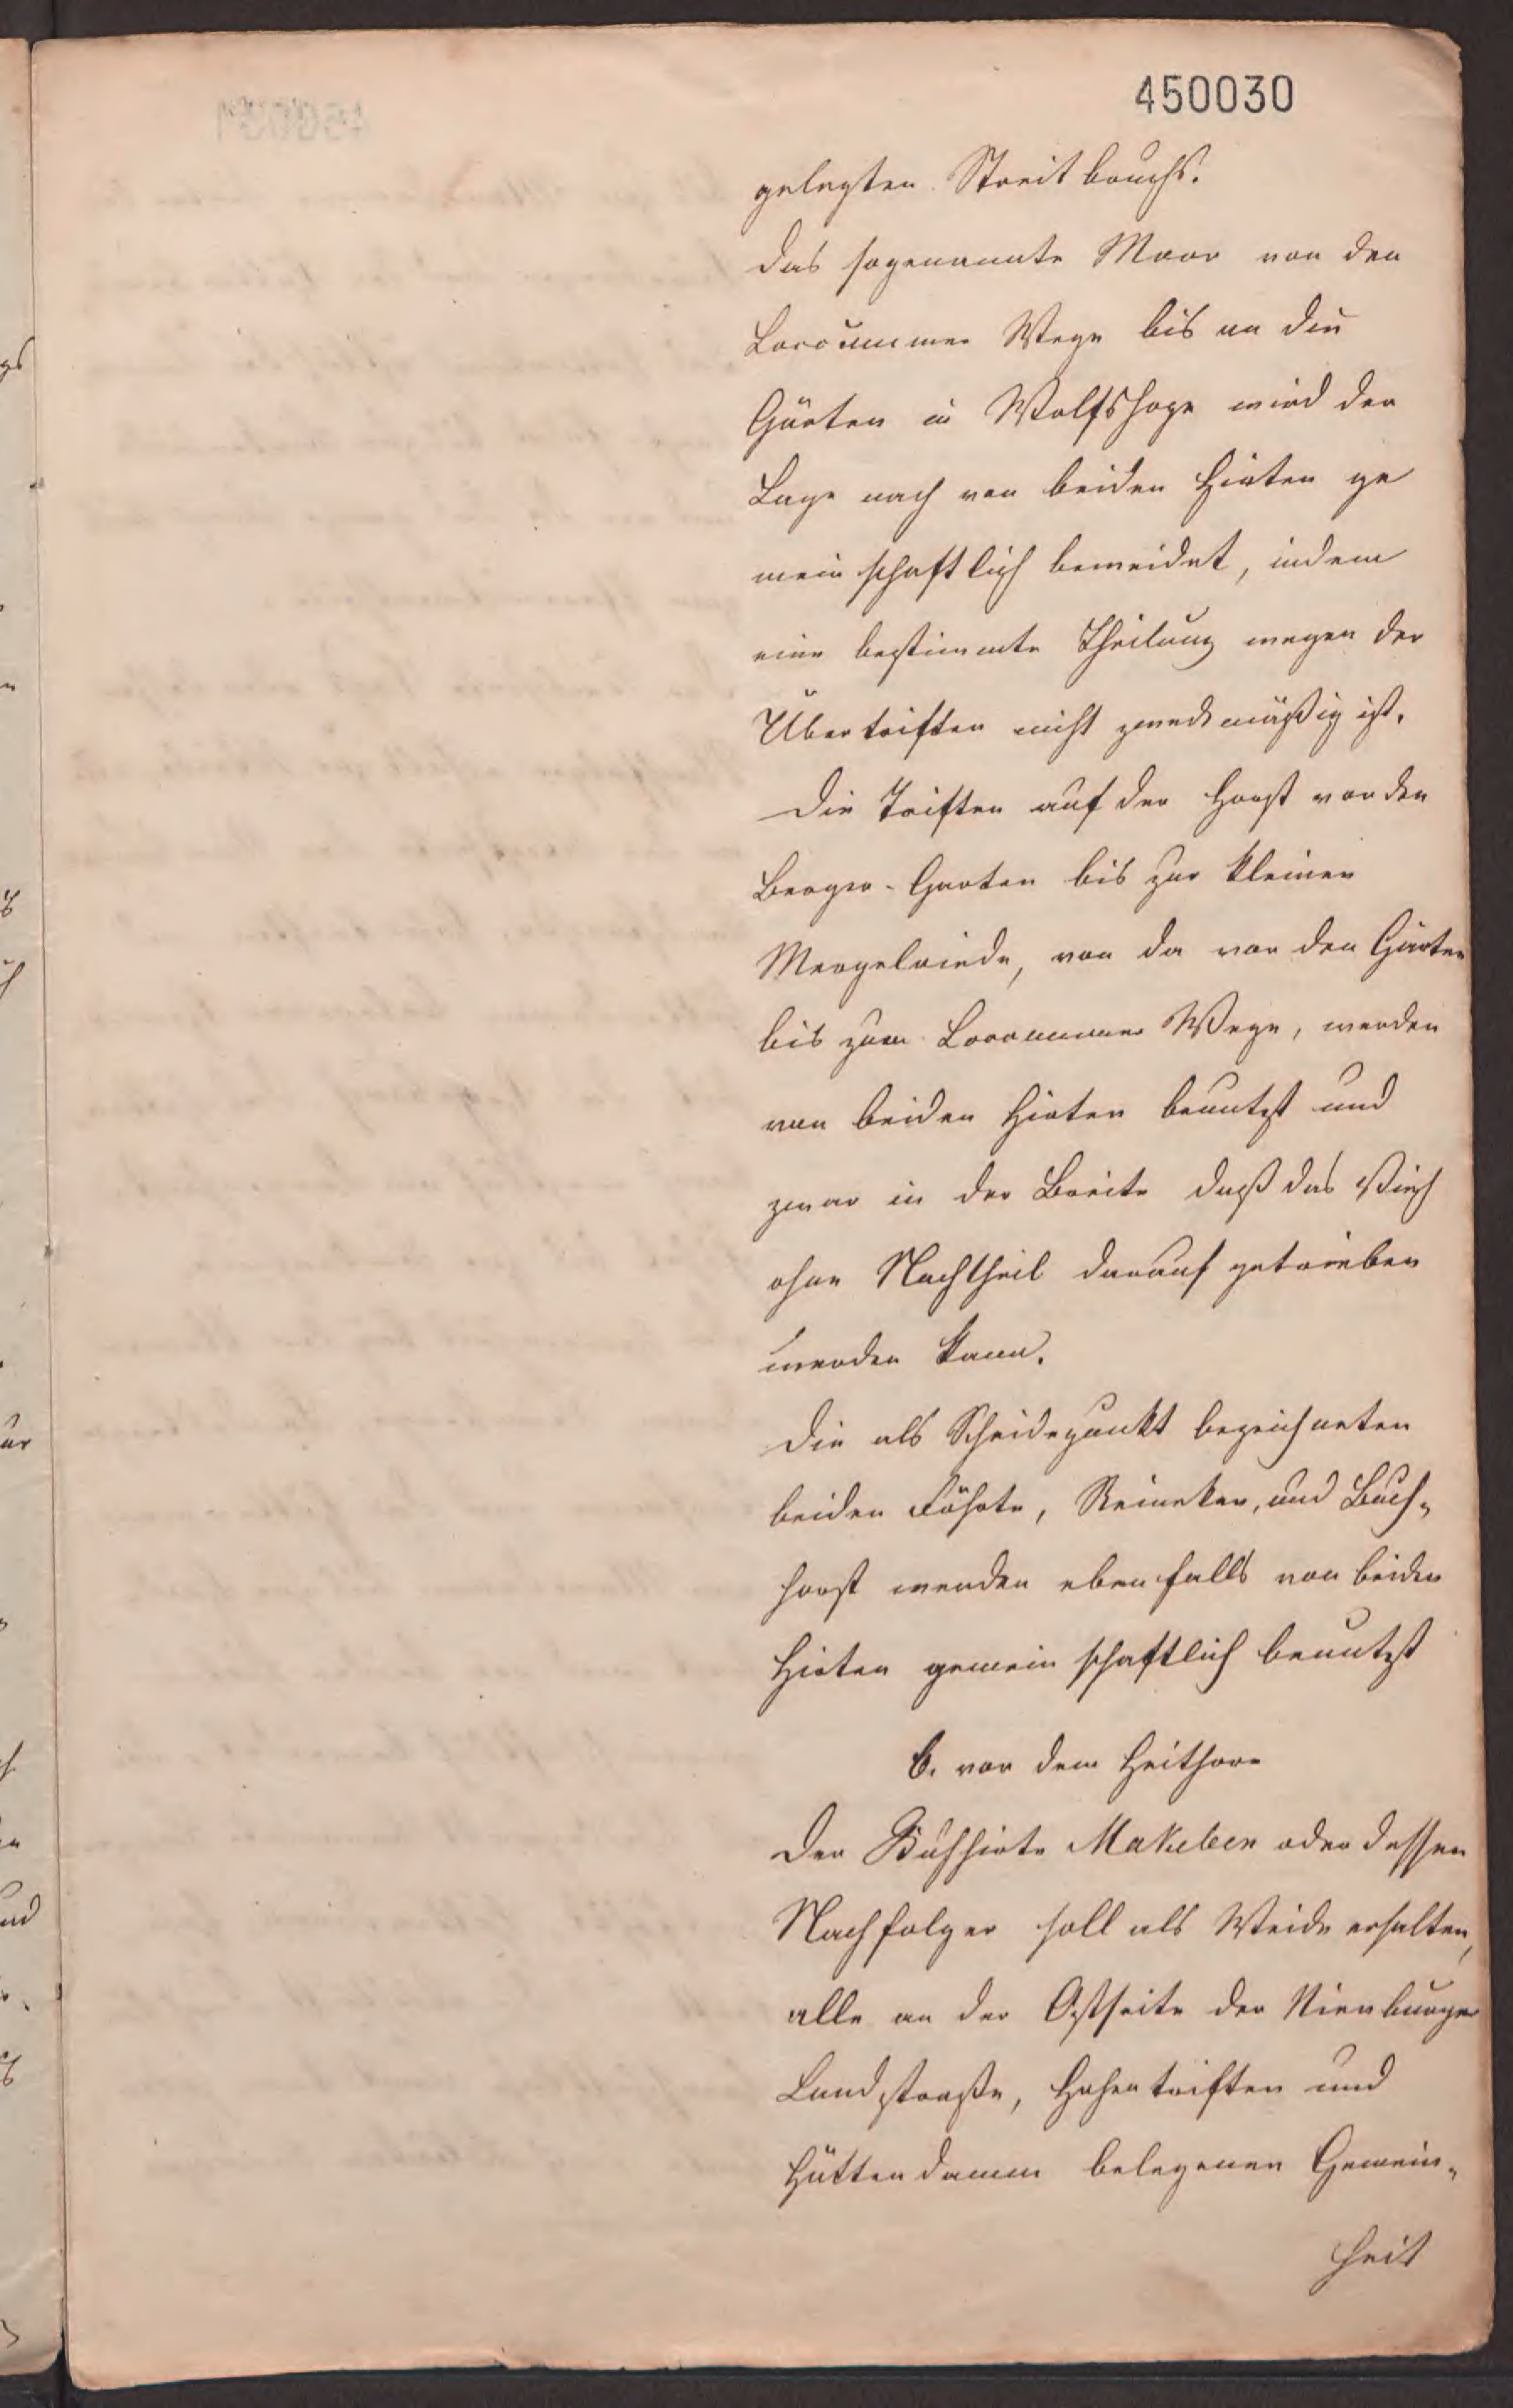 450030
gelegten Streitbruchs.
Das sogenannte Moor von den
Loccummer Wege bis an die
Gärten in Wolfshage wird der
Lage nach von beiden Hirten ge
meinschaftlich beweidet, indem
eine bestimmte Theilung wegen der
Übertriften nicht zweckmäßig ist.
Die Triften auf der Horst vor den
Berger-Garten bis zur kleinen
Mergelriede, von da vor den Gärten
bis zum Loccummer Wege, werden
von beiden Hirten benutzt und
zwar in der Breite daß das Vieh
ohne Nachtheil darauf getrieben
werden kann.
Die als Scheidepunkt bezeichneten
beiden Föhrte, Reineken, und Buch-
horst werden ebenfalls von beiden
Hirten gemeinschaftlich benutzt
b. vor dem Heithore
Der Kuhhirte Makeben oder dessen
Nachfolger soll als Weide erhalten,
alle an der Ostseite der Nienburger
Landstraße, Hohentriften und
Hüttendamm belegenen Gemein-
heit